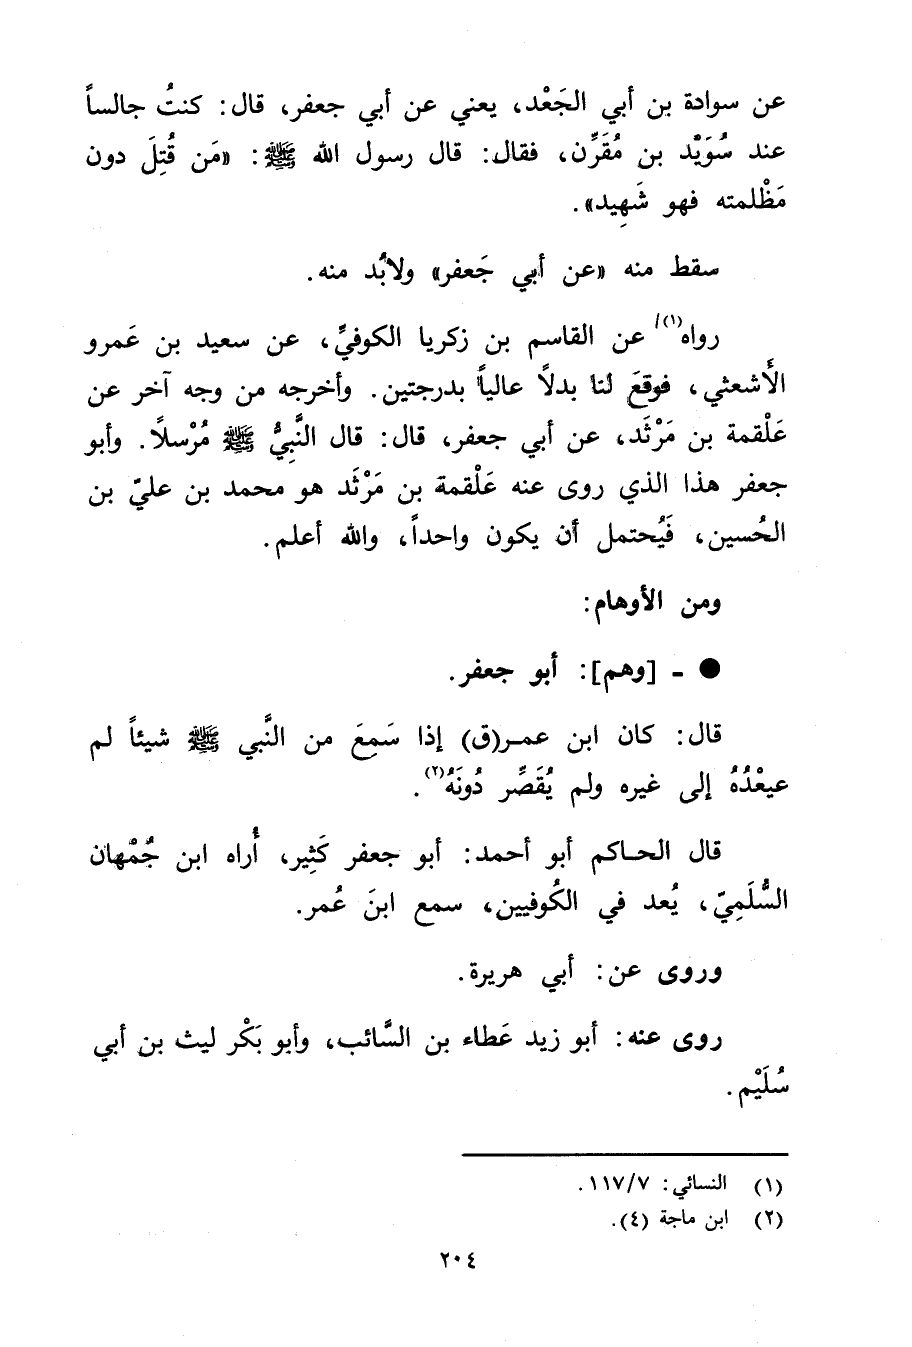 عن سوادة بن أبي الجَعْد، يعني عن أبي جعفر، قال: كنتُ جالساً
عند سُوَيْد بن مُقَرِّن، فقال: قال رسول الله ﷺ: «مَن قُتِلَ دون
مَظْلمته فهو شَهِيد».
سقط منه «عن أبي جَعفر» ولابُد منه.
رواه(١)/ عن القاسم بن زكريا الكوفيِّ، عن سعيد بن عَمرو
الأَشعثي، فوقعَ لنا بدلًا عالياً بدرجتين. وأخرجه من وجه آخر عن
عَلْقمة بن مَرْثَد، عن أبي جعفر، قال: قال النَّبِيُّ ﷺ مُرْسلًا. وأبو
جعفر هذا الذي روى عنه عَلْقمة بن مَرْثَد هو محمد بن عليّ بن
الحُسين، فَيُحتمل أن يكون واحداً، والله أعلم.
ومن الأوهام:
● ـ [وهم]: أبو جعفر.
قال: كان ابن عمر(ق) إذا سَمِعَ من النَّبي ﷺ شيئاً لم
عيعْدُهُ إلى غيره ولم يُقَصِّر دُونَهُ(٢).
قال الحاكم أبو أحمد: أبو جعفر كَثِير، أُراه ابن جُمْهان
السُّلَمِيّ، يُعد في الكُوفيين، سمع ابنَ عُمر.
وروى عن: أبي هريرة.
روى عنه: أبو زيد عَطاء بن السَّائب، وأبو بَكْر ليث بن أبي
سُلَيْم.
(١) النسائي: ١١٧/٧.
(٢) ابن ماجة (٤).
٢٠٤